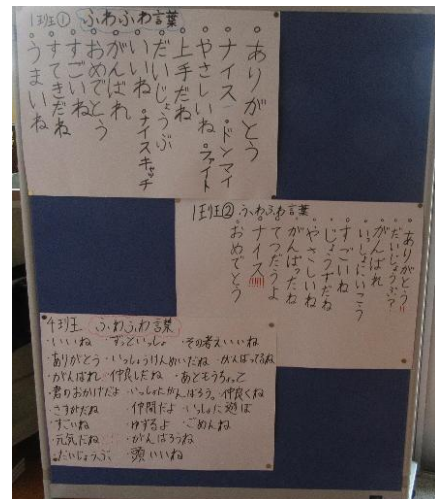 1班① ふわふわ言葉
・ありがとう
・ナイス・ドンマイ
・やさしいね・ファイト
・上手だね
・だいじょうぶ
・いいね・ナイスキャッチ
・がんばれ
・おめでとう
・すごいね
・すてきだね
・うまいね
1班② ふわふわ言葉
・ありがとう!!
・だいじょうぶ?
・がんばれ
・いっしょにいこう
・すごいね
・じょうずだね
・やさしいね
・がんばったね
・てつだうよ
・ナイス!!!!
・おめでとう
4班 ふわふわ言葉
・いいね ずっといっしょ ・その考えいいね
・ありがとう ・いっしょうけんめいだね ・がんばってるね
・がんばれ ・仲良しだね ・あともうちょっと
・君のおかげだよ ・いっしょにがんばろう。 ・仲良くね
・さすがだね ・仲間だよ ・いっしょに遊ぼ
・すごいね ・ゆするよ ・ごめんね
・元気だね ・がんばろうね
・だいじょうぶ ・頭いいね